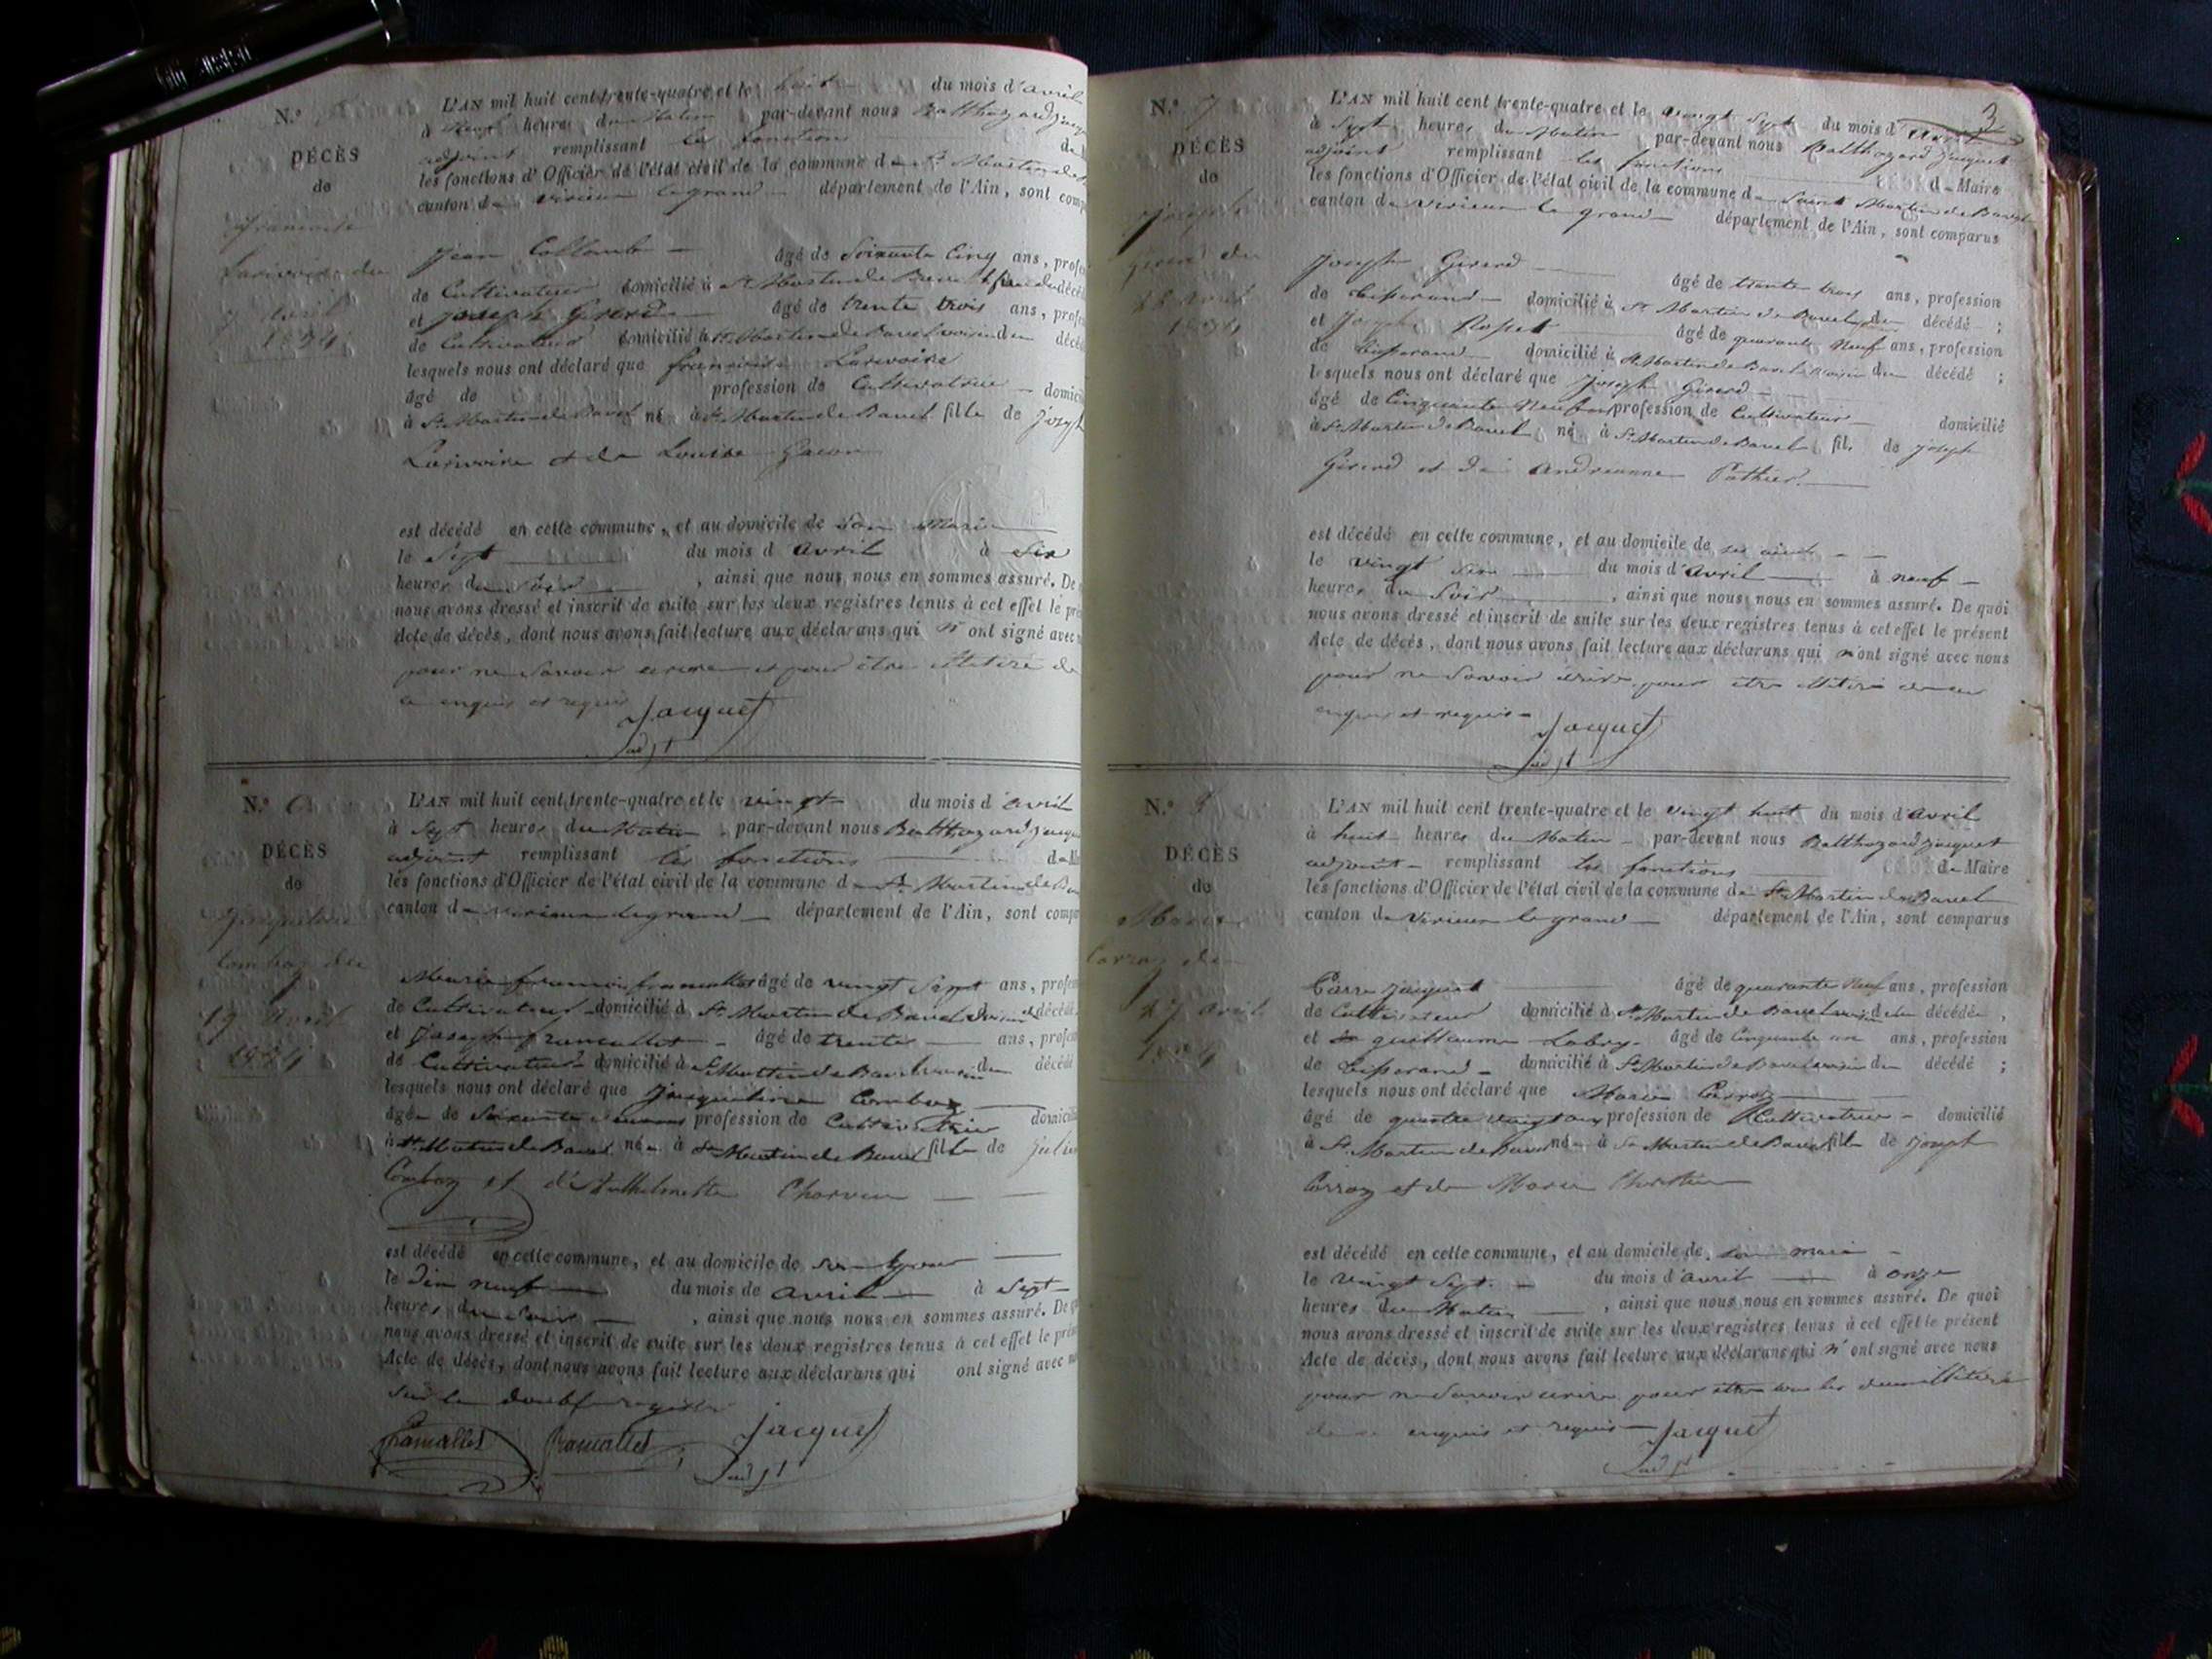 N.º
DÉCÈS
de
françoise
Larivoire du
7 avril
1834
L'AN mil huit cent trente-quatre et le huit du mois d'avril
à neuf heures du Matin par-devant nous Balthazard Jacqu
adjoint remplissant les fonctions de
les fonctions d'Officier de l'état civil de la commune de St Martin de
canton de virieu le grand département de l'Ain, sont comp
Jean Collomb âgé de Soixante Cinq ans, profe
de Cultivateur domicilié à St Martin de Bavel décéd
et joseph Girerd âgé de trente trois ans, profe
de Cultivateur domicilié à St Martin de Bavel voisin du décéd
lesquels nous ont déclaré que françoise Larivoire
âgé de profession de Cultivatrice domici
à St Martin de Bavel né à St Martin de Bavel fille de joseph
Larivoire et de Louise
est décédé en cette commune, et au domicile de son Mari
le Sept du mois d avril à Six
heures du Soir, ainsi que nous nous en sommes assuré. De
nous avons dressé et inscrit de suite sur les deux registres tenus à cet effet le pré
Acte de décès, dont nous avons fait lecture aux déclarans qui n'ont signé avec
pour ne Savoir ecrire et pour être illitiré de
ce enquis et requis
Jacquet
adjt
N.º 6
DÉCÈS
de
Jacqueline
Combaz du
19 avril
1834
L'AN mil huit cent trente-quatre et le vingt du mois d'avril
à Sept heures du Matin par-devant nous Balthazard jacqu
adjoint remplissant les fonctions de M
les fonctions d'Officier de l'état civil de la commune de St Martin de Ba
canton de virieu le grand département de l'Ain, sont comp
âgé de vingt Sept ans, profes
de Cultivateur domicilié à St Martin de Bavel voisin décédé
et joseph francallet âgé de trente ans, profes
de Cultivateur domicilié à St Martin de Bavel voisin du décédé
lesquels nous ont déclaré que jacqueline Combaz
âgée de Soixante profession de Cultivatrice domicili
à St Martin de Bavel née à St Martin de Bavel fille de Julie
Combaz et d'Anthelmette Charvin
est décédé en cette commune, et au domicile de son Epoux
le Dix neuf du mois de avril à Sept
heures du Soir, ainsi que nous nous en sommes assuré. De
nous avons dressé et inscrit de suite sur les deux registres tenus à cet effet le prés
Acte de décès, dont nous avons fait lecture aux déclarans qui ont signé avec
sur le double registre
francallet francallet Jacquet
adjt
3
N.º 7
DÉCÈS
de
Joseph
Girerd du
26 avril
1834
L'AN mil huit cent trente-quatre et le vingt Sept du mois d'avril
à Sept heures du Matin par-devant nous Balthazard Jacquet
adjoint remplissant les fonctions de Maire
les fonctions d'Officier de l'état civil de la commune de Saint Martin de Bavel
canton de virieu le grand département de l'Ain, sont comparus
Joseph Girerd âgé de trente trois ans, profession
de tisserand domicilié à St Martin de Bavel du décédé ;
et Joseph Rosset âgé de quarante Neuf ans, profession
de tisserand domicilié à St Martin de Bavel voisin du décédé ;
lesquels nous ont déclaré que Joseph Girerd
âgé de Cinquante Neuf ans profession de Cultivateur domicilié
à St Martin de Bavel né à St Martin de Bavel fils de joseph
Girerd et de Andréanne Pothier
est décédé en cette commune, et au domicile de
le vingt Six du mois d'avril à neuf
heures du Soir, ainsi que nous nous en sommes assuré. De quoi
nous avons dressé et inscrit de suite sur les deux registres tenus à cet effet le présent
Acte de décès, dont nous avons fait lecture aux déclarans qui n'ont signé avec nous
pour ne Savoir écrire pour être illitiré de ce
enquis et requis
Jacquet
adjt
N.º 8
DÉCÈS
de
Marie
Carraz du
27 avril
1834
L'AN mil huit cent trente-quatre et le vingt huit du mois d'avril
à huit heures du Matin par-devant nous Balthazard Jacquet
adjoint remplissant les fonctions de Maire
les fonctions d'Officier de l'état civil de la commune de St Martin de Bavel
canton de Virieu le grand département de l'Ain, sont comparus
jacquet âgé de quarante Neuf ans, profession
de Cultivateur domicilié à St Martin de Bavel voisin de la décédée,
et guillaume Labry âgé de Cinquante un ans, profession
de tisserand domicilié à St Martin de Bavel voisin du décédé ;
lesquels nous ont déclaré que Marie Carraz
âgé de quatre vingt ans profession de Cultivatrice domicilié
à St Martin de Bavel née à St Martin de Bavel fille de joseph
Carraz et de Marie
est décédé en cette commune, et au domicile de son mari
le vingt Sept du mois d'avril à onze
heures du Matin, ainsi que nous nous en sommes assuré. De quoi
nous avons dressé et inscrit de suite sur les deux registres tenus à cet effet le présent
Acte de décès, dont nous avons fait lecture aux déclarans qui n'ont signé avec nous
pour ne Savoir ecrire pour être tous les deux illitirés
de ce enquis et requis Jacquet
adjt